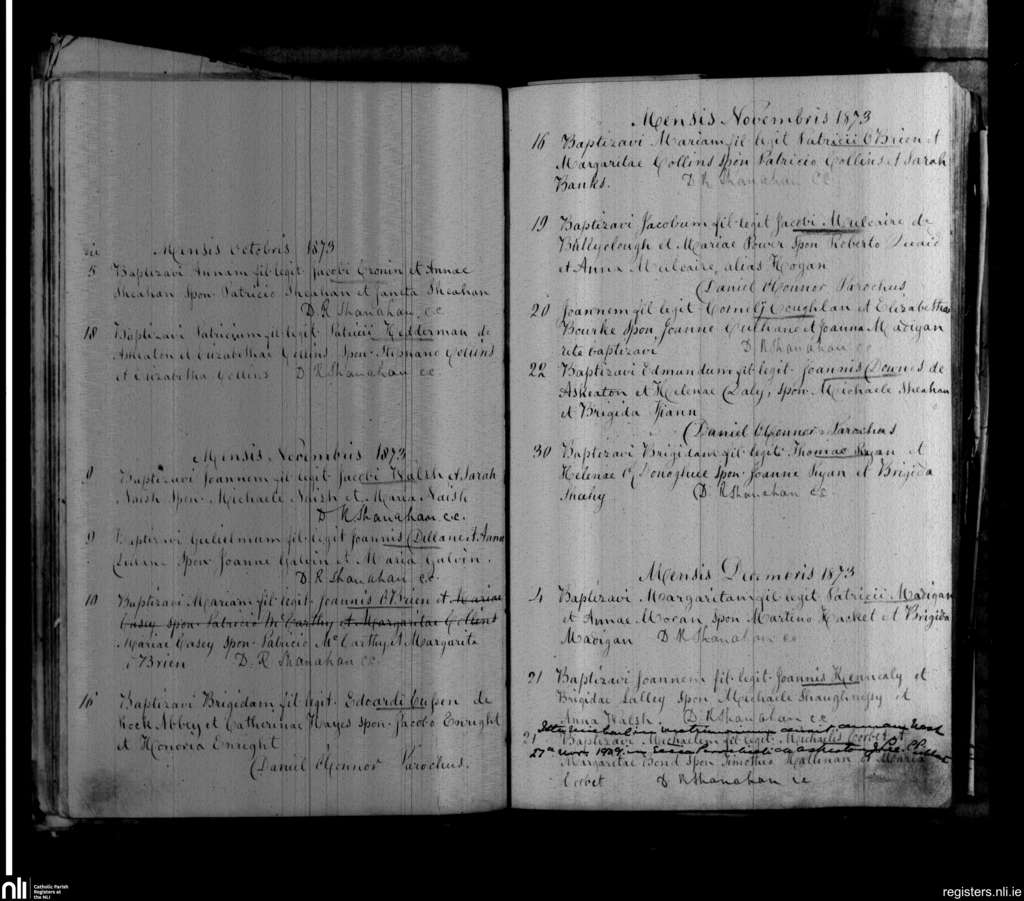 Mensis Octobris 1873
5 Baptizavi Annam fil legit Jacobi Cronin et Annae
Sheahan Spon Patricio Sheahan et Janeta Sheahan
D. R. Shanahan c.c.
18 Baptizavi Patricium fil legit Patricii Hedderman de
Askeaton et Elizabethae Collins Spon Stephano Collins
et Elizabetha Collins D. R. Shanahan c.c.
Mensis Novembris 1873
Baptizavi Joannem fil legit Jacobi Walsh et Sarah
Naish Spon Michaele Naish et Maria Naish
D. R. Shanahan c.c.
9 Baptizavi Gulielmum fil legit Joannis Dillane et Anna
Spon Joanne Galvin et Maria Galvin.
D. R. Shanahan c.c.
10 Baptizavi Mariam fil legit Joannis O'Brien et Mariae
Casey spon Patricio McCarthy et Margaritae Collins
Mariae Casey spon Patricio McCarthy et Margarita
O'Brien D. R. Shanahan c.c.
16 Baptizavi Brigedam fil legit Edoardi de
Rock Abbey et Catherinae Hayes spon Jacobo Enright
et Honoria Enright
Daniel O'Connor Parochus.
Mensis Novembris 1873
16 Baptizavi Mariam fil legit Patricii O'Brien et
Margaritae Collins spon Patricio Collins et Sarah
Banks. D. R. Shanahan C.C.
19 Baptizavi Jacobum fil legit Jacobi Mulcaire de
et Mariae Power Spon Roberto
et Anna Mulcaire, alias Hogan
Daniel O'Connor Parochus
20 Joannem fil legit Cornelij Coughlan et Elizabethae
Bourke spon Joanne Culhane et Joanna Madigan
rite baptizavi D. R. Shanahan c.c.
22 Baptizavi Edmundum fil legit Joannis Downes de
Askeaton et Helenae Daly, spon Michaele Sheahan
et Brigida
Daniel O'Connor Parochus
30 Baptizavi Brigidam fil legit Thomae Ryan et
Helenae O'Donoghue spon Joanne Ryan et Brigida
Sheehy D. R. Shanahan c.c.
Mensis Decembris 1873
4 Baptizavi Margaritam fil legit Patricii Madigan
et Annae Moran spon Martino Hacket et Brigida
Madigan D. R. Shanahan cc
21 Baptizavi Joannem fil legit Joannis Kennealy et
Brigidae Lalley Spon Michaele Shaughnessy et
Anna Walsh. D. R. Shanahan c.c.
21 Baptizavi Michaelem fil legit Michaelis Corbet et
Margaritae Bond Spon Timotheo Hallinan et Maria
Corbet D R Shanahan cc
nli
Catholic Parish
Registers at
the NLI
registers.nli.ie